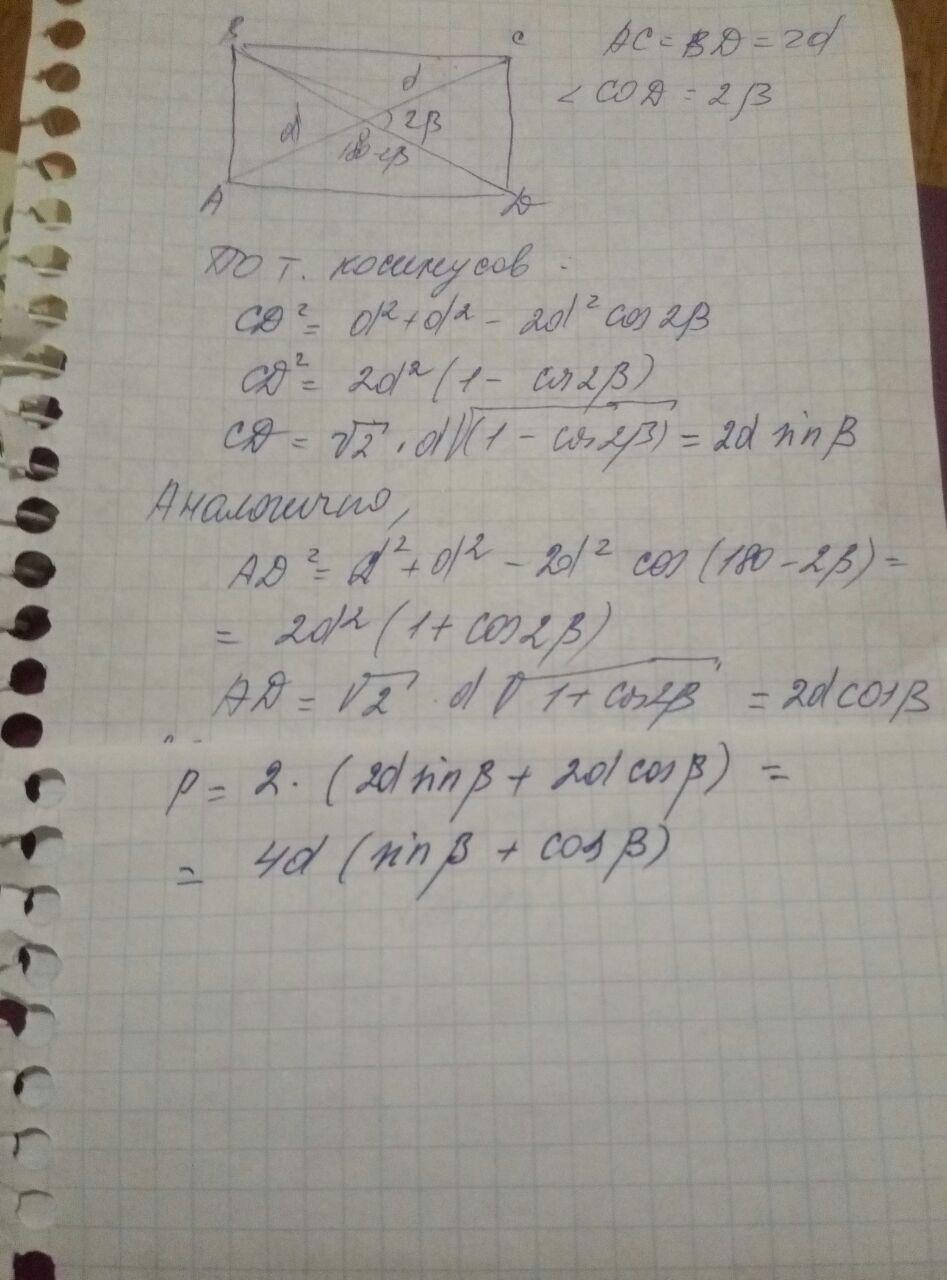 B
C
AC = BD = 2d
∠ COD = 2β
d
d
2β
180-2β
A
D
По т. косинусов :
CD² = d² + d² - 2d² cos 2β
CD² = 2d² (1 - cos 2β)
CD = √2 · d √(1 - cos 2β) = 2d sin β
Аналогично,
AD² = d² + d² - 2d² cos (180 - 2β) =
= 2d² (1 + cos 2β)
AD = √2 · d √1 + cos 2β = 2d cos β
P = 2 · (2d sin β + 2d cos β) =
= 4d (sin β + cos β)